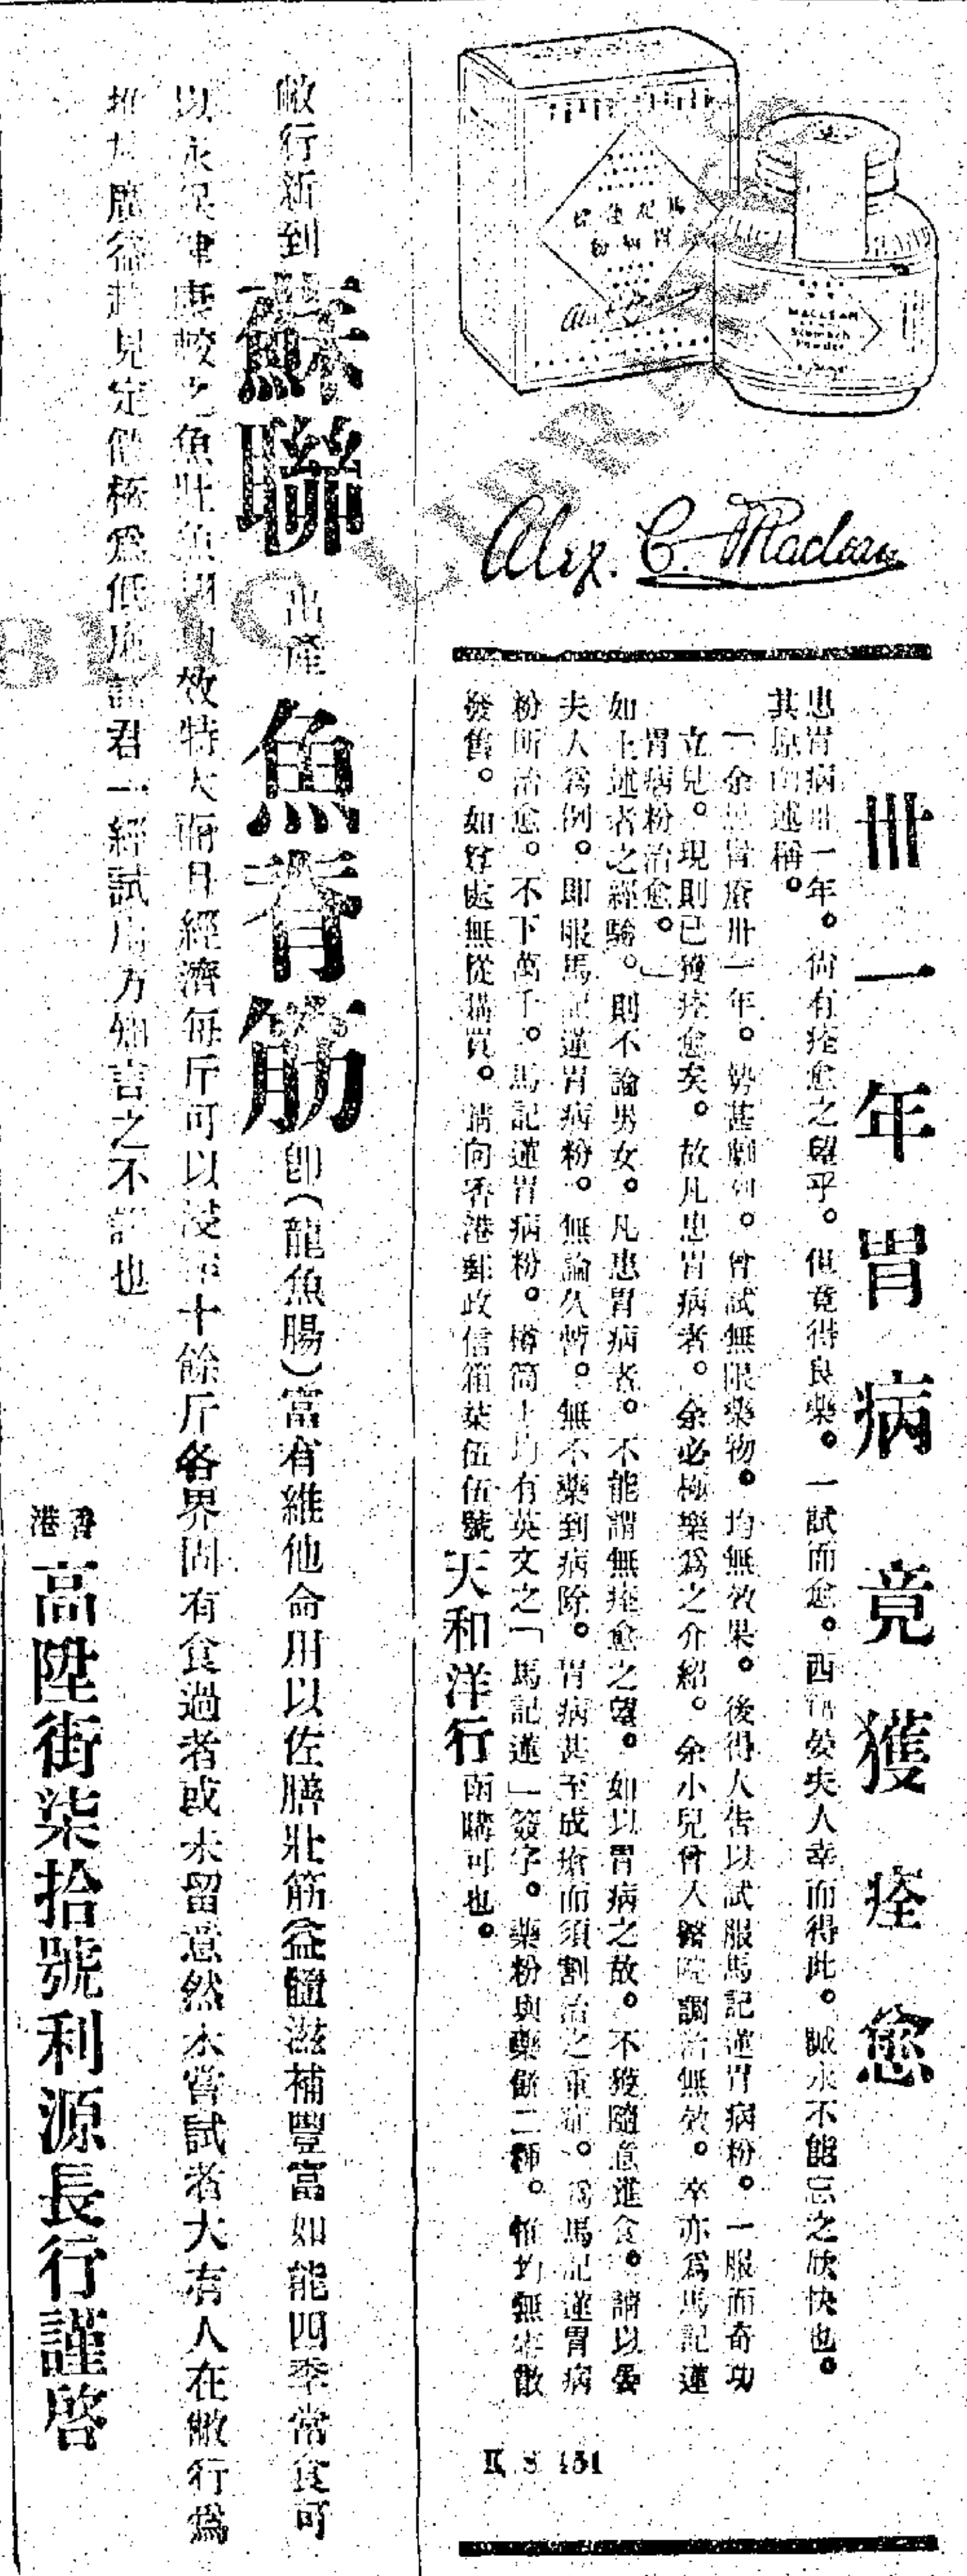 MACLEAN
Stomach
Powder
Alex. C. Maclean
卅一年胃病竟獲痊愈
患胃病卅一年。尚有痊愈之望乎。但竟得良藥。一試而愈。西晏夫人幸而得此。誠永不能忘之欣快也。
其原由述稱。
「余患胃瘡卅一年。勢甚劇烈。曾試無限藥物。均無效果。後得人告以試服馬記蓮胃病粉。一服而奇功
立見。現則已獲痊愈矣。故凡患胃病者。余必極樂爲之介紹。余小兒曾入醫院調治無效。卒亦爲馬記蓮
胃病粉治愈。」
如上述者之經驗。則不論男女。凡患胃病者。不能謂無痊愈之望。如以胃病之故。不獲隨意進食。請以晏
夫人爲例。即服馬記蓮胃病粉。無論久暫。無不藥到病除。胃病甚至成瘡而須割治之重症。爲馬記蓮胃病
粉所治愈。不下萬千。馬記蓮胃病粉。樽筒上均有英文之「馬記蓮」簽字。藥粉與藥餅二種。惟均無零散
發售。如尊處無從購買。請向香港郵政信箱柒伍伍號天和洋行函購可也。
K S 451
敝行新到蘇聯出產魚脊筋即（龍魚腸）富有維他命用以佐膳壯筋益髓滋補豐富如能四季常食可
以永保康較之魚肚魚效特大而且經濟每斤可以浸至十餘斤各界固有食過者或未留意然未嘗試者大有人在敝行爲
推廣益起見定價極爲低廉諸君一經試用方知言之不謬也
香港高陞街柒拾號利源長行謹啓